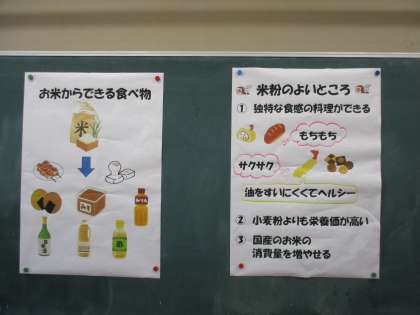 お米からできる食べ物
米
みりん
酢
米粉のよいところ
① 独特な食感の料理ができる
もちもち
サクサク
油をすいにくくてヘルシー
② 小麦粉よりも栄養価が高い
③ 国産のお米の
消費量を増やせる